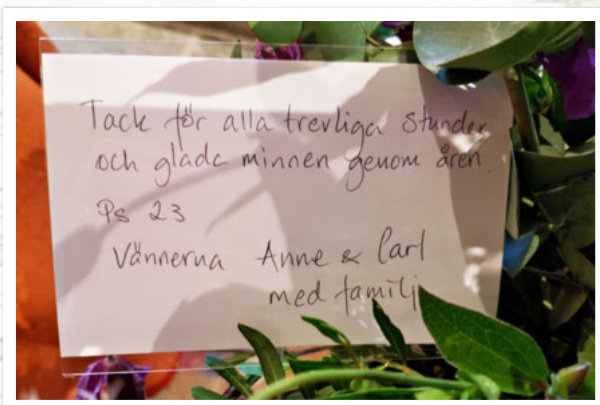 Tack för alla trevliga stunder
och glada minnen genom åren.
Ps 23
Vännerna Anne & Carl
med familj